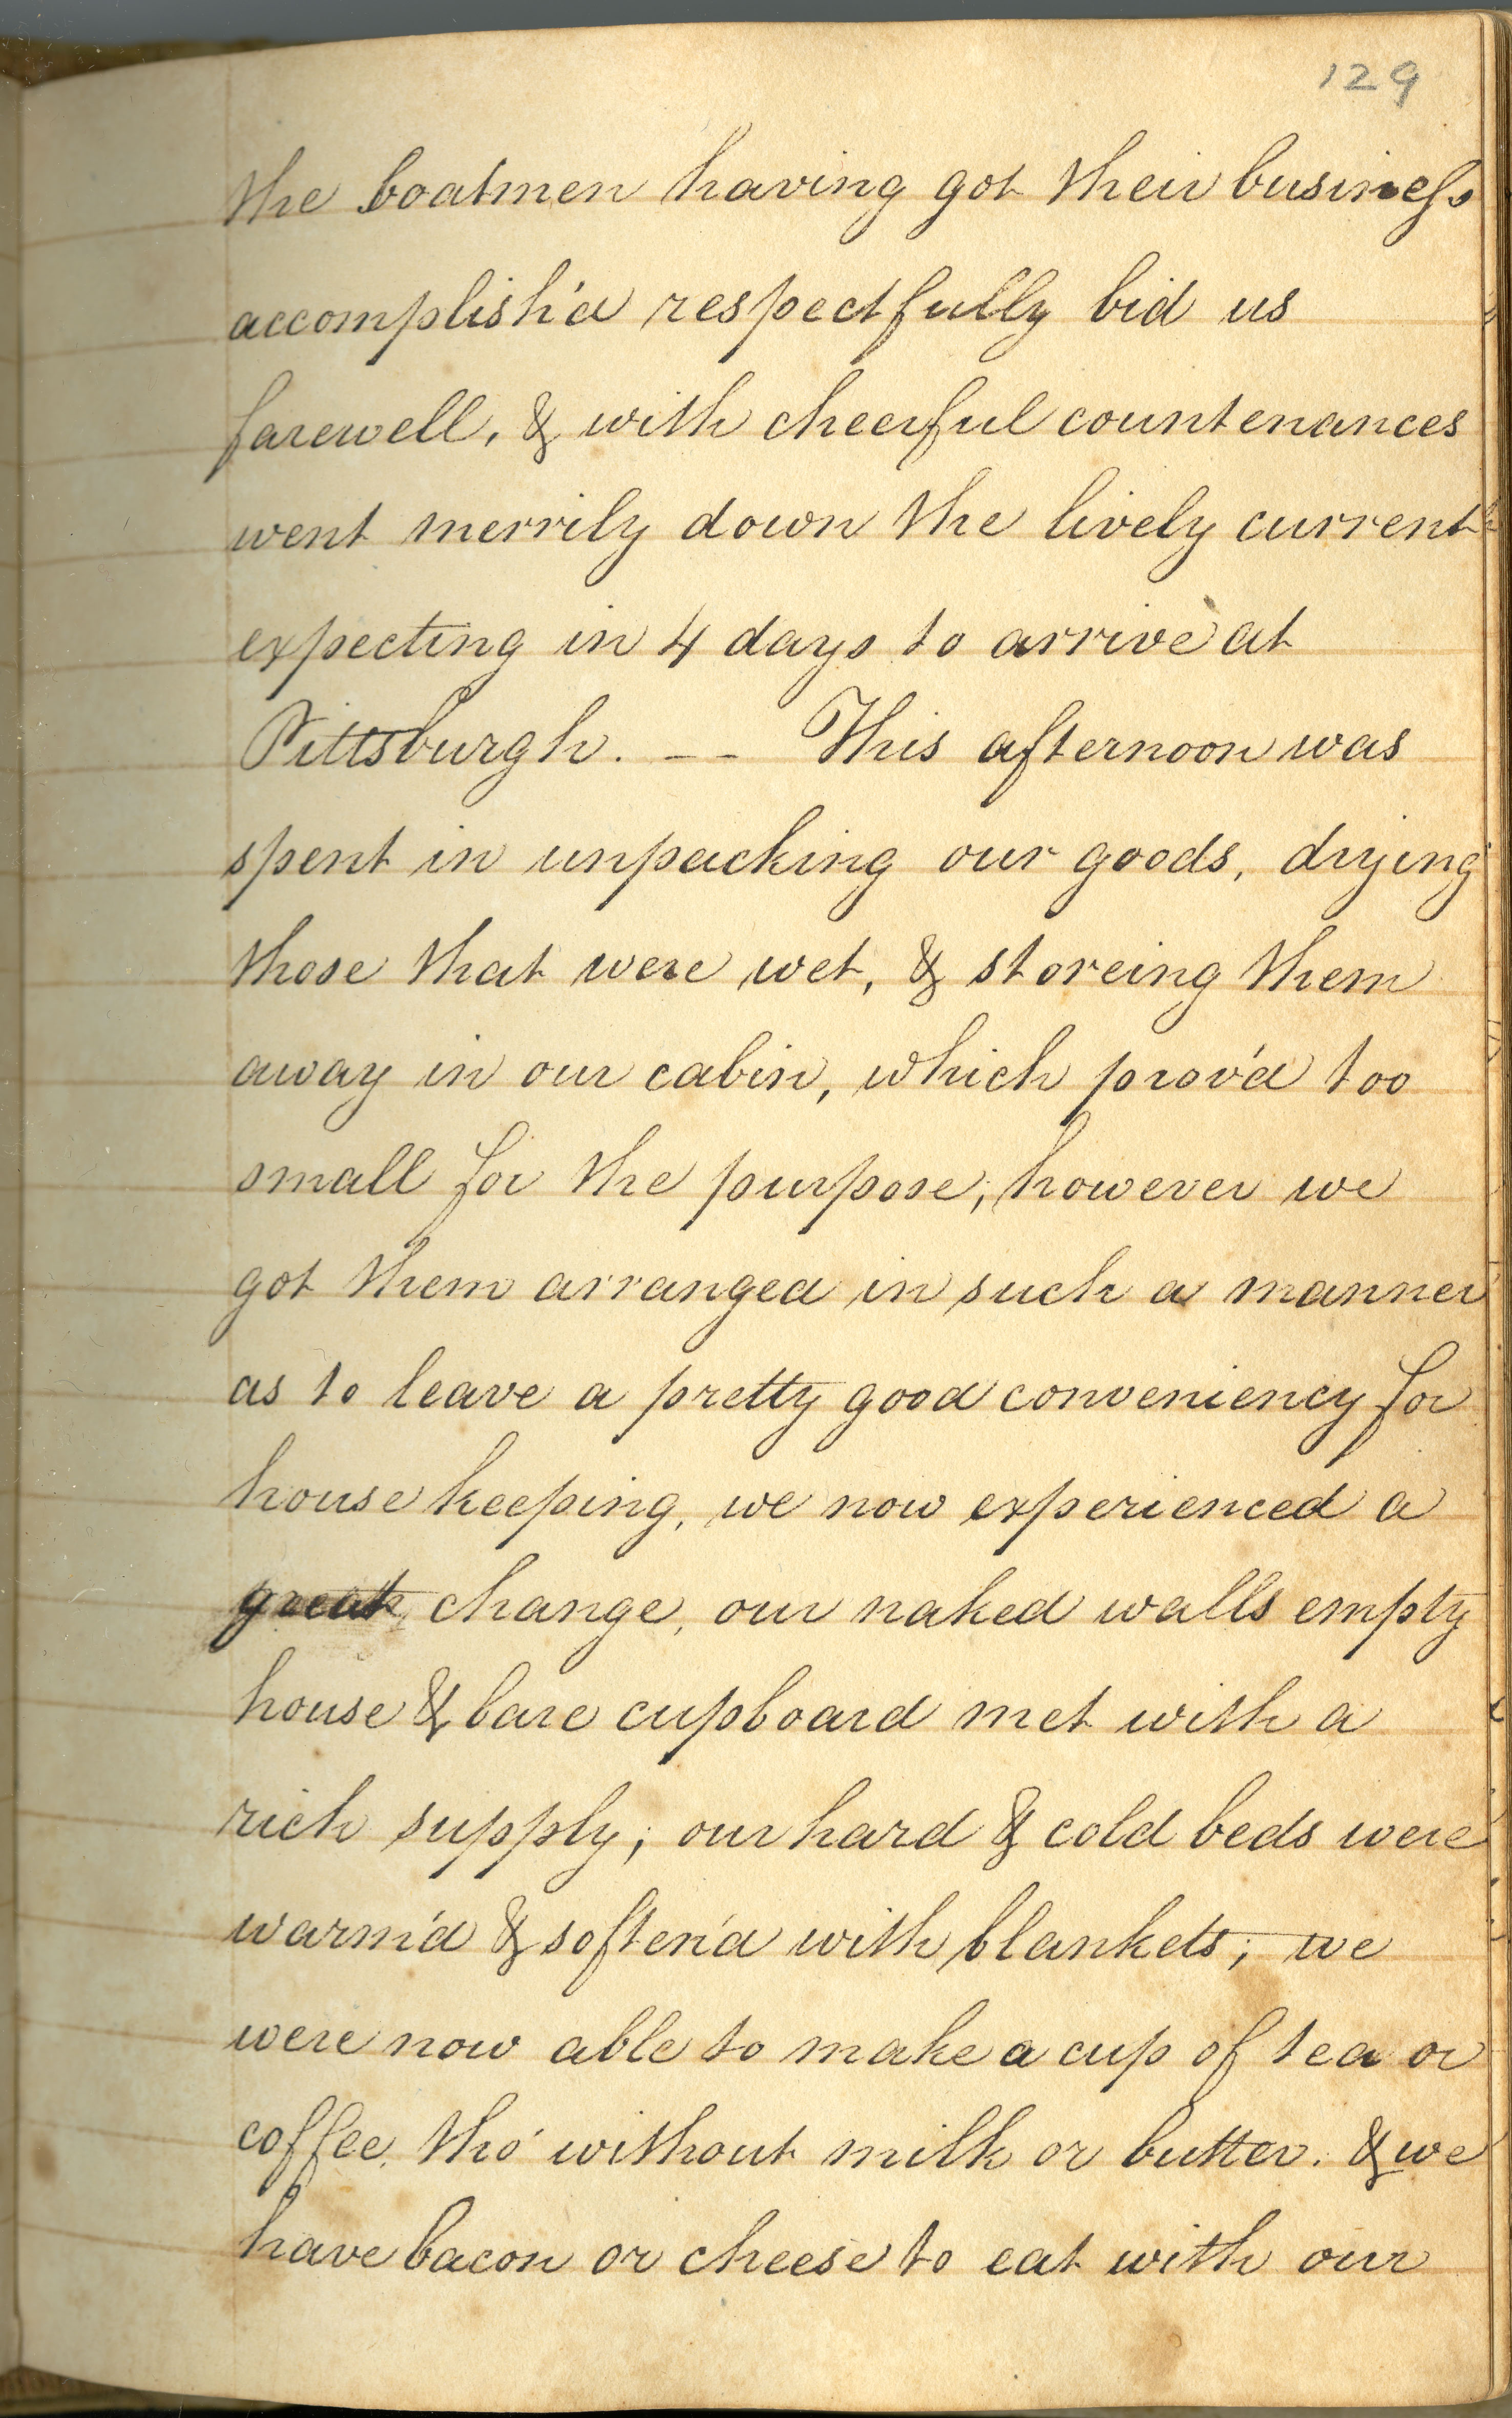 129
the boatmen having got their business
accomplish'd respectfully bid us
farewell, & with cheerful countenances
went merrily down the lively current
expecting in 4 days to arrive at
Pittsburgh. -- This afternoon was
spent in unpacking our goods, drying
those that were wet, & storeing them
away in our cabin, which prov'd too
small for the purpose; however we
got them arranged in such a manner
as to leave a pretty good conveniency for
house keeping, we now experienced a
great change, our naked walls empty
house & bare cupboard met with a
rich supply; our hard & cold beds were
warm'd & soften'd with blankets; we
were now able to make a cup of tea or
coffee, tho' without milk or butter. & we
have bacon or cheese to eat with our